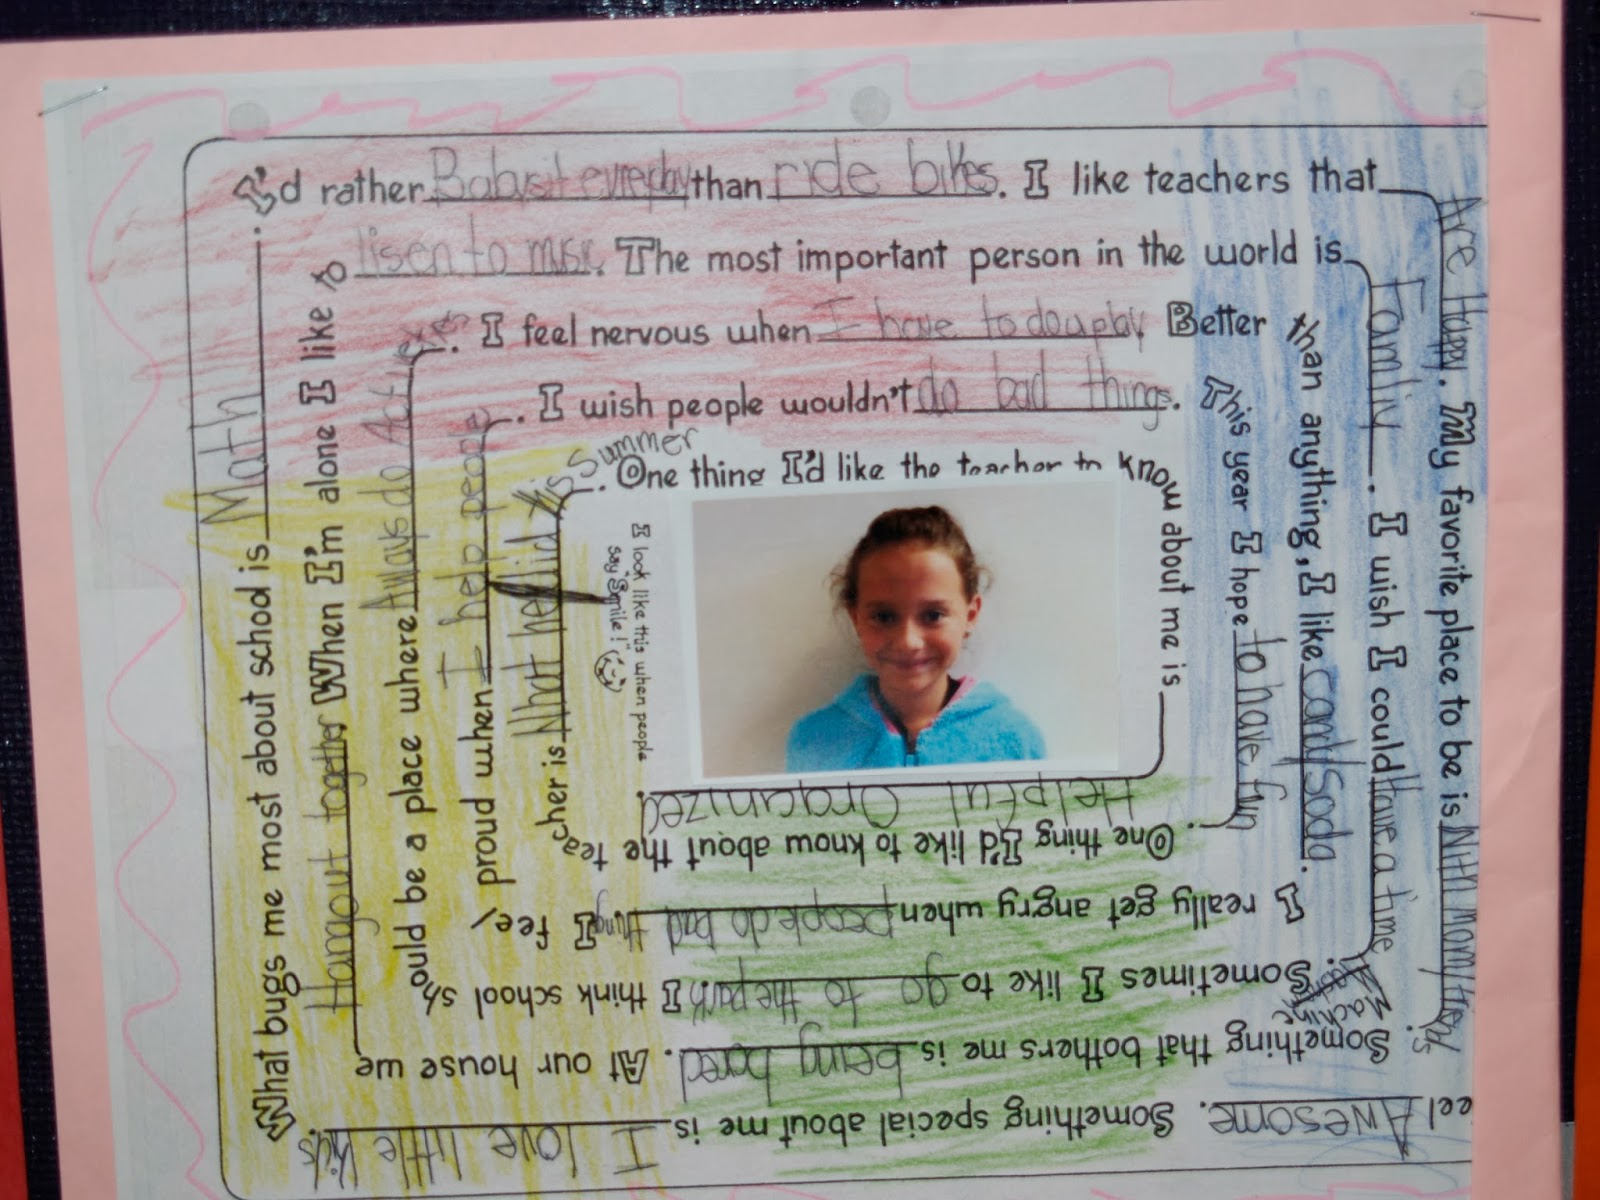 I'd rather Babysit evreday than ride bikes. I like teachers that
Are Happy. My favorite place to be is With mom/friends.
eel Awesome. Something special about me is
I love little kids.
What bugs me most about school is Math.
I like to lisen to musc. The most important person in the world is
Family. I wish I could Have a time Machine.
Something that bothers me is being bored. At our house we
Hangout together When I'm alone
I feel nervous when I have to do a play. Better
than anything, I like candy/Soda.
Sometimes I like to go to the park I think school
should be a place where Always do Activeties.
I wish people wouldn't do bad things.
This year I hope to have fun.
I really get angry when people do bad things I feel
proud when I help people.
One thing I'd like the teacher to know about me is
Helpful Organized.
One thing I'd like to know about the
teacher is What he did this Summer.
I look like this when people
say "Smile!"